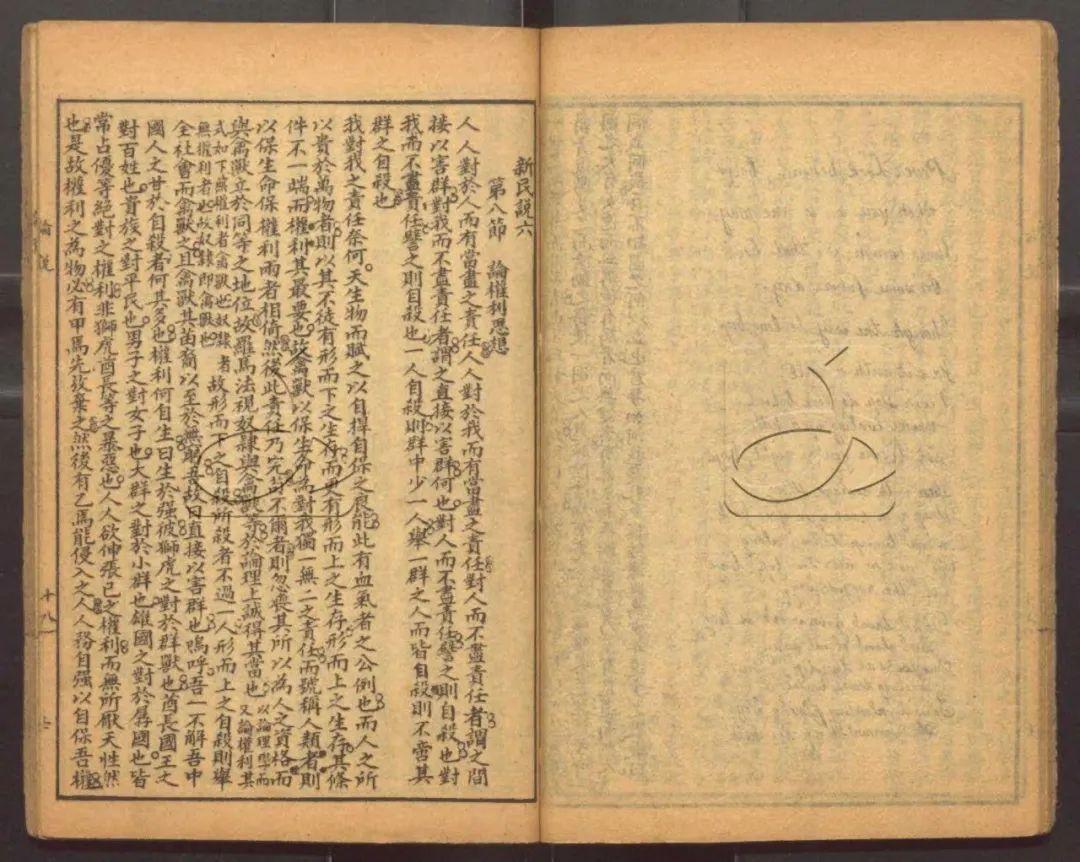 新民說六
第八節　論權利思想
人人對於人而有當盡之責任人人對於我而有當盡之責任對人而不盡責任者謂之間
接以害群對我而不盡責任者謂之直接以害群何也對人而不盡責任譬之則自殺也對
我而不盡責任譬之則自殺也一人自殺則群中少一人舉一群之人而皆自殺則不啻其
群之自殺也
我對我之責任奈何。天生物而賦之以自捍自保之良能此有血氣者之公例也而人之所
以貴於萬物者則以其不徒有形而下之生存而更有形而上之生存形而上之生存其條
件不一端而權利其最要也故禽獸以保生命為對我獨一無二之責任而號稱人類者則
以保生命保權利兩者相倚然後此責任乃完苟不爾者則忽喪其所以為人之資格而
與禽獸立於同等之地位故羅馬法視奴隸與禽獸等於論理上誠得其當也以論理學而又論權利其
式如下無權利者禽獸也奴隸者無權利者也故奴隸即禽獸也故形而下之自殺所殺者不過一人形而上之自殺則舉
全社會而禽獸之且禽獸其苗裔以至於無窮吾故曰直接以害群也嗚呼吾一不解吾中
國人之甘於自殺者何其多也權利何自生曰生於强彼獅虎之對於群獸也酋長國王之
對百姓也貴族之對平民也男子之對女子也大群之對於小群也雄國之對於孱國也皆
常占優等絕對之權利非獅虎酋長等之暴惡也人人欲伸張己之權利而無所厭天性然
也是故權利之為物必有甲焉先放棄之然後有乙焉能侵入之人人務自强以自保吾權
論說